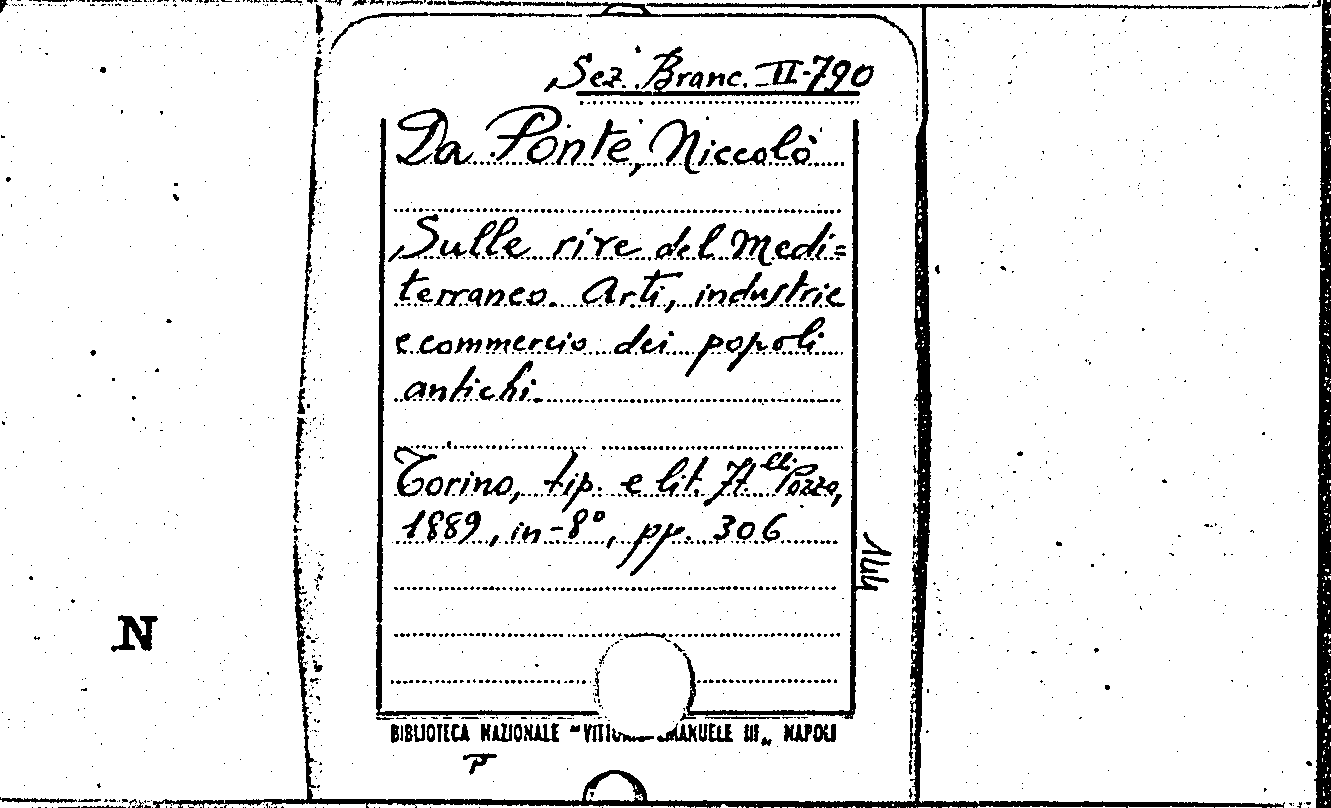 Sez. Branc. II-790
Da Ponte, Niccolò
Sulle rive del Medi=
terraneo. Arti, industrie
e commercio dei popoli
antichi.
Torino, tip. e lit. F.lli Pozzo,
1889, in-8°, pp. 306
N
BIBLIOTECA NAZIONALE "VITTORIO EMANUELE III" NAPOLI